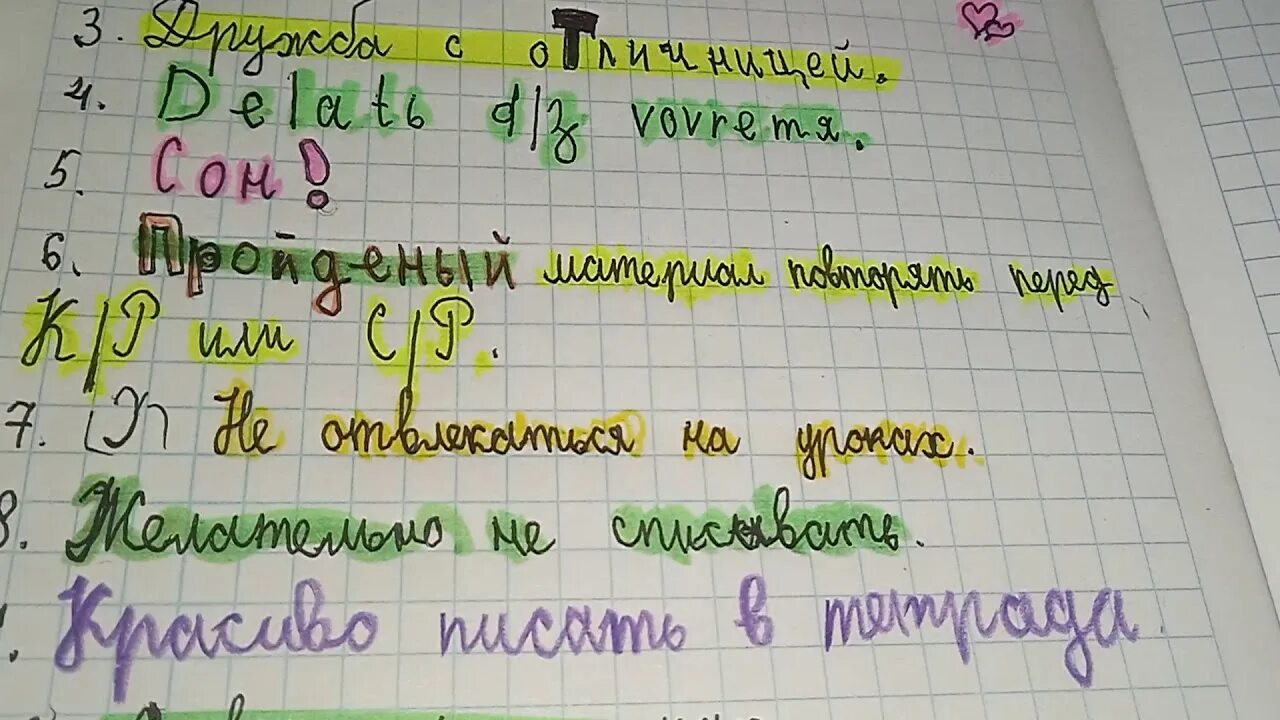 3. Дружба с оТличницей.
4. Delatь d/z vovremя.
5. Сон!
6. Пройденый материал повторять перед
К/Р или С/Р.
7. Не отвлекаться на уроках.
8. Желательно не списывать.
Красиво писать в тетрада